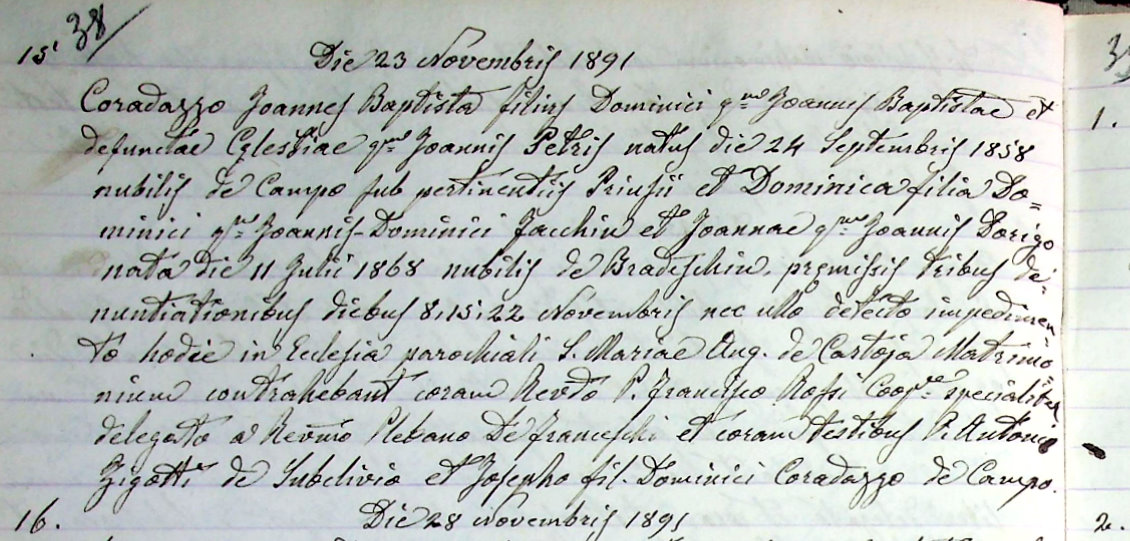 38/
15. Die 23 Novembris 1891
Coradazzo Joannes Baptista filius Dominici qm Joannis Baptistae et
defunctae Cęlestiae qm Joannis Petris natus die 24 Septembris 1858
nubilis de Campo sub pertinentiis Priusii et Dominica filia Do=
minici qm Joannis-Dominici Facchin et Joannae qm Joannis Dorigo
nata die 11 Julii 1868 nubilis de Bradeschin. pręmissis tribus de-
nuntiationibus diebus 8,15,22 Novembris nec ullo detecto impedimen
to hodie in Ecclesia parochiali S. Mariae Ang. de Castoja Matrimo=
nium contrahebant coram Revdo P. Francisco Rossi Coopre specialiter
delegato a Revmo Plebano De Franceschi et coram testibus P. Antonio
Zigotti de Subclivio et Josepho fil. Dominici Coradazzo de Campo.
16. Die 28 Novembris 1891
1.
2.